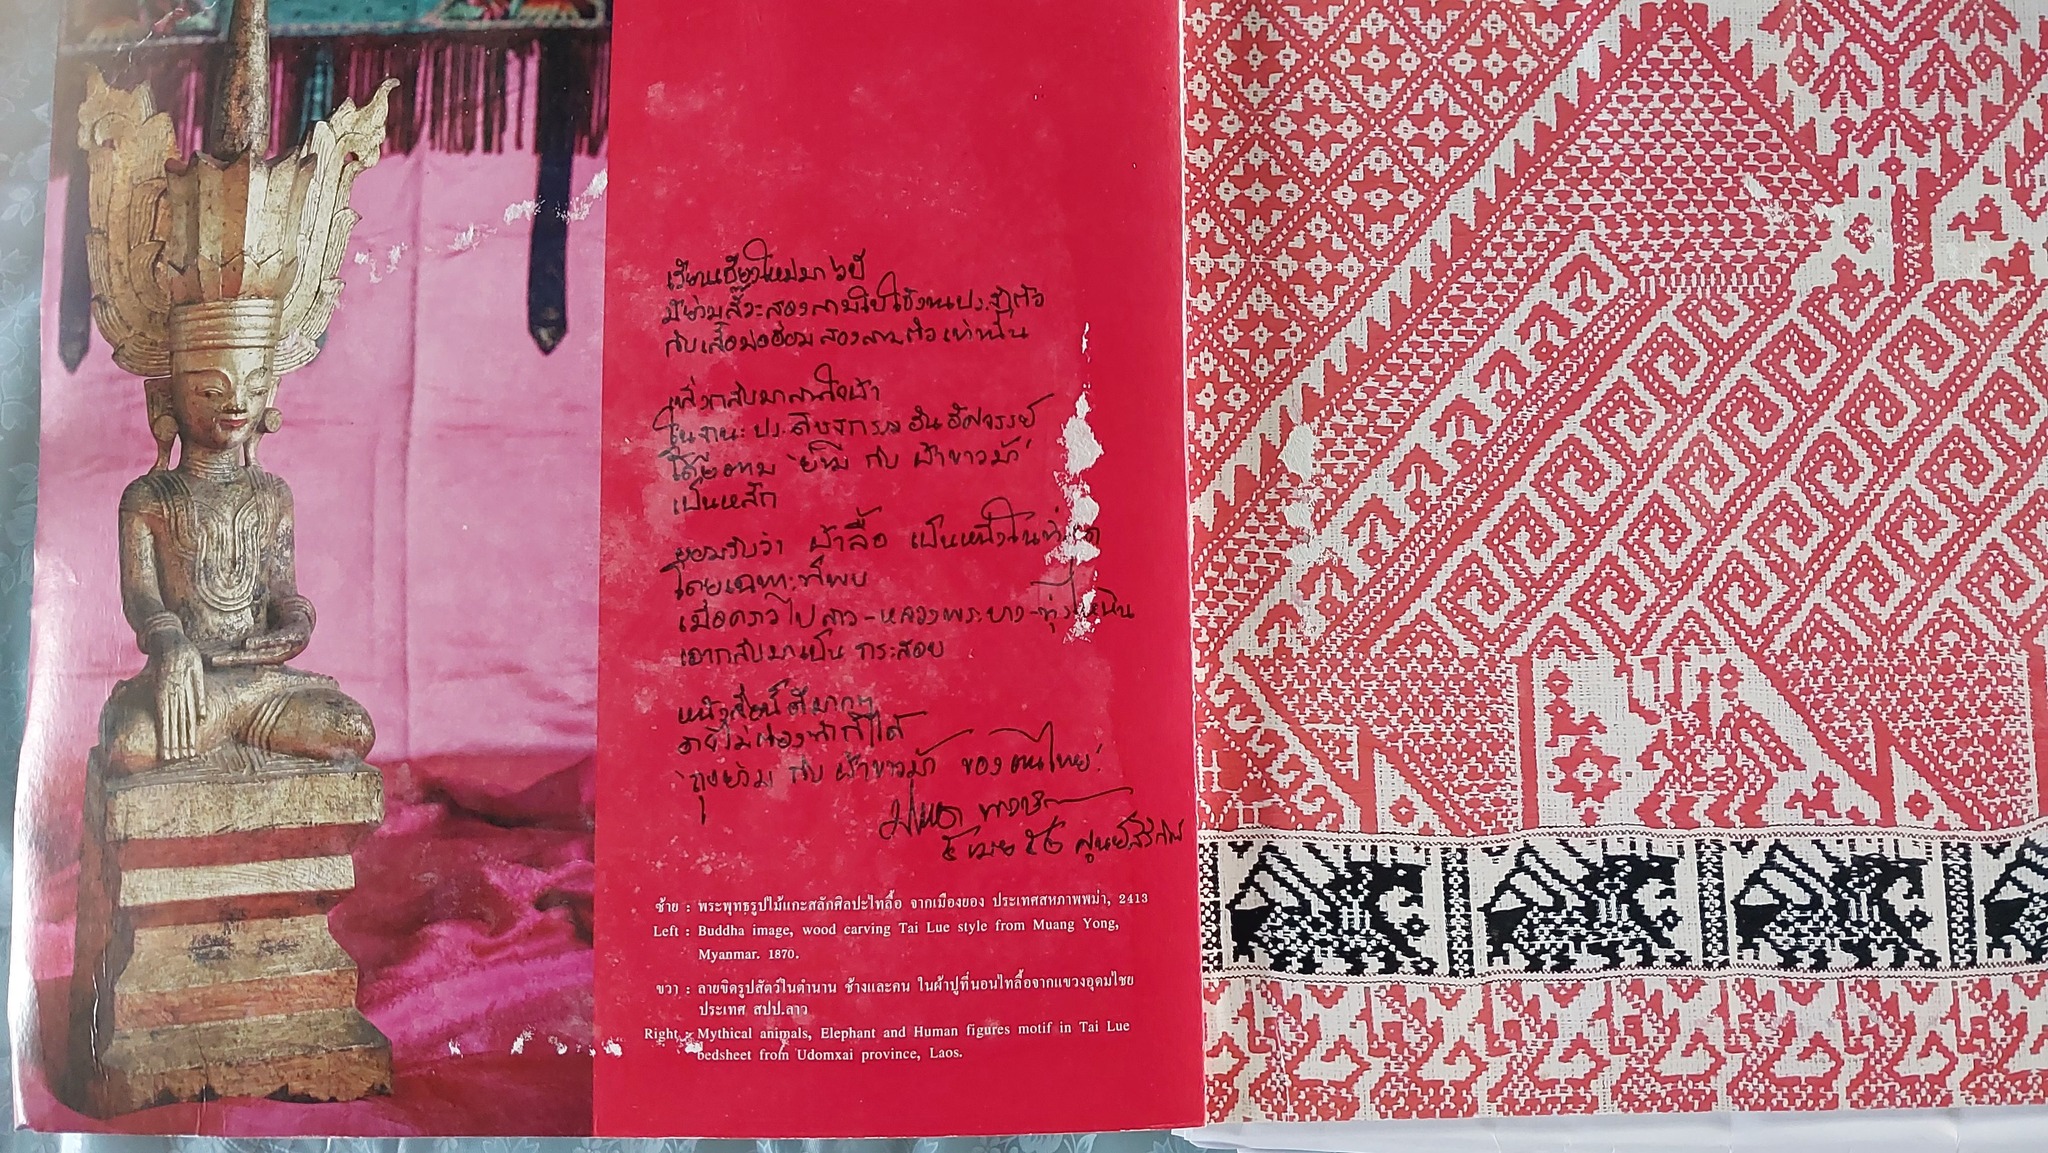 เรียนเชียงใหม่มา ๖ ปี
มีย่ามลั๊วะสองสามใบใช้งานประจำตัว
กับเสื้อม่อฮ่อมสองสามตัวเท่านั้น
เพิ่งกลับมาสนใจผ้า
ในฐานะประดิษฐกรรมอันอัศจรรย์
โดยถาม ย่าม กับ ผ้าขาวม้า
เป็นหลัก
ยอมรับว่า ผ้าลื้อ เป็นหนึ่งใน
โดยเฉพาะที่พบ
เมื่อคราวไปลาว-หลวงพระบาง-ทุ่งไหหิน
เอากลับมาเป็น กระสอบ
หนังสือนี้ดีมากๆ
ก็ได้
'ถุงย่าม กับ ผ้าขาวม้า ของคนไทย'
๕ เมย ๕๒ ศูนย์สิริกิติ์
ซ้าย : พระพุทธรูปไม้แกะสลักศิลปะไทลื้อ จากเมืองยอง ประเทศสหภาพพม่า, 2413
Left : Buddha image, wood carving Tai Lue style from Muang Yong,
Myanmar. 1870.
ขวา : ลายขิดรูปสัตว์ในตำนาน ช้างและคน ในผ้าปูที่นอนไทลื้อจากแขวงอุดมไชย
ประเทศ สปป.ลาว
Right : Mythical animals, Elephant and Human figures motif in Tai Lue
bedsheet from Udomxai province, Laos.